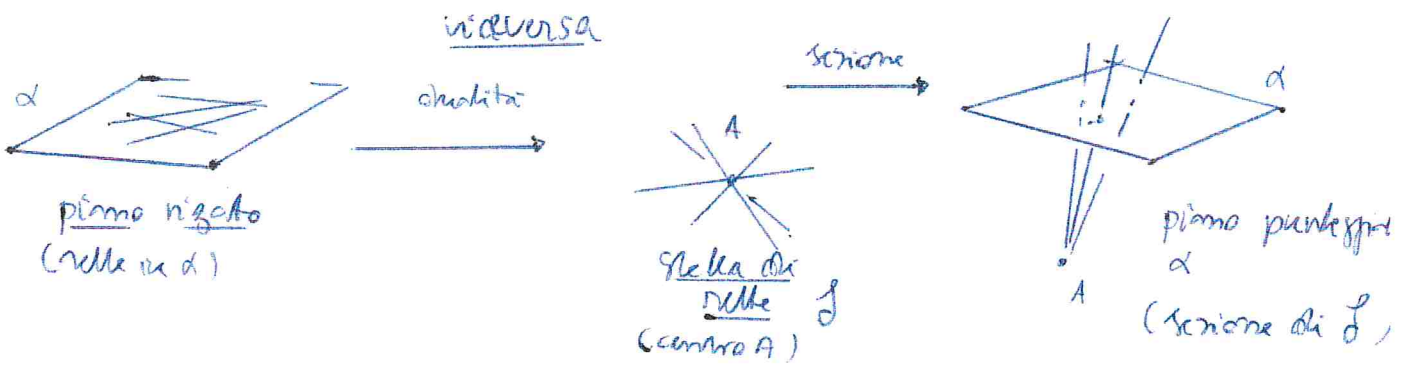 viceversa
α
dualità
sezione
α
A
piano rigato
(rette in α)
stella di
rette 𝒮
(centro A)
A
piano punteggiato
α
(sezione di 𝒮)